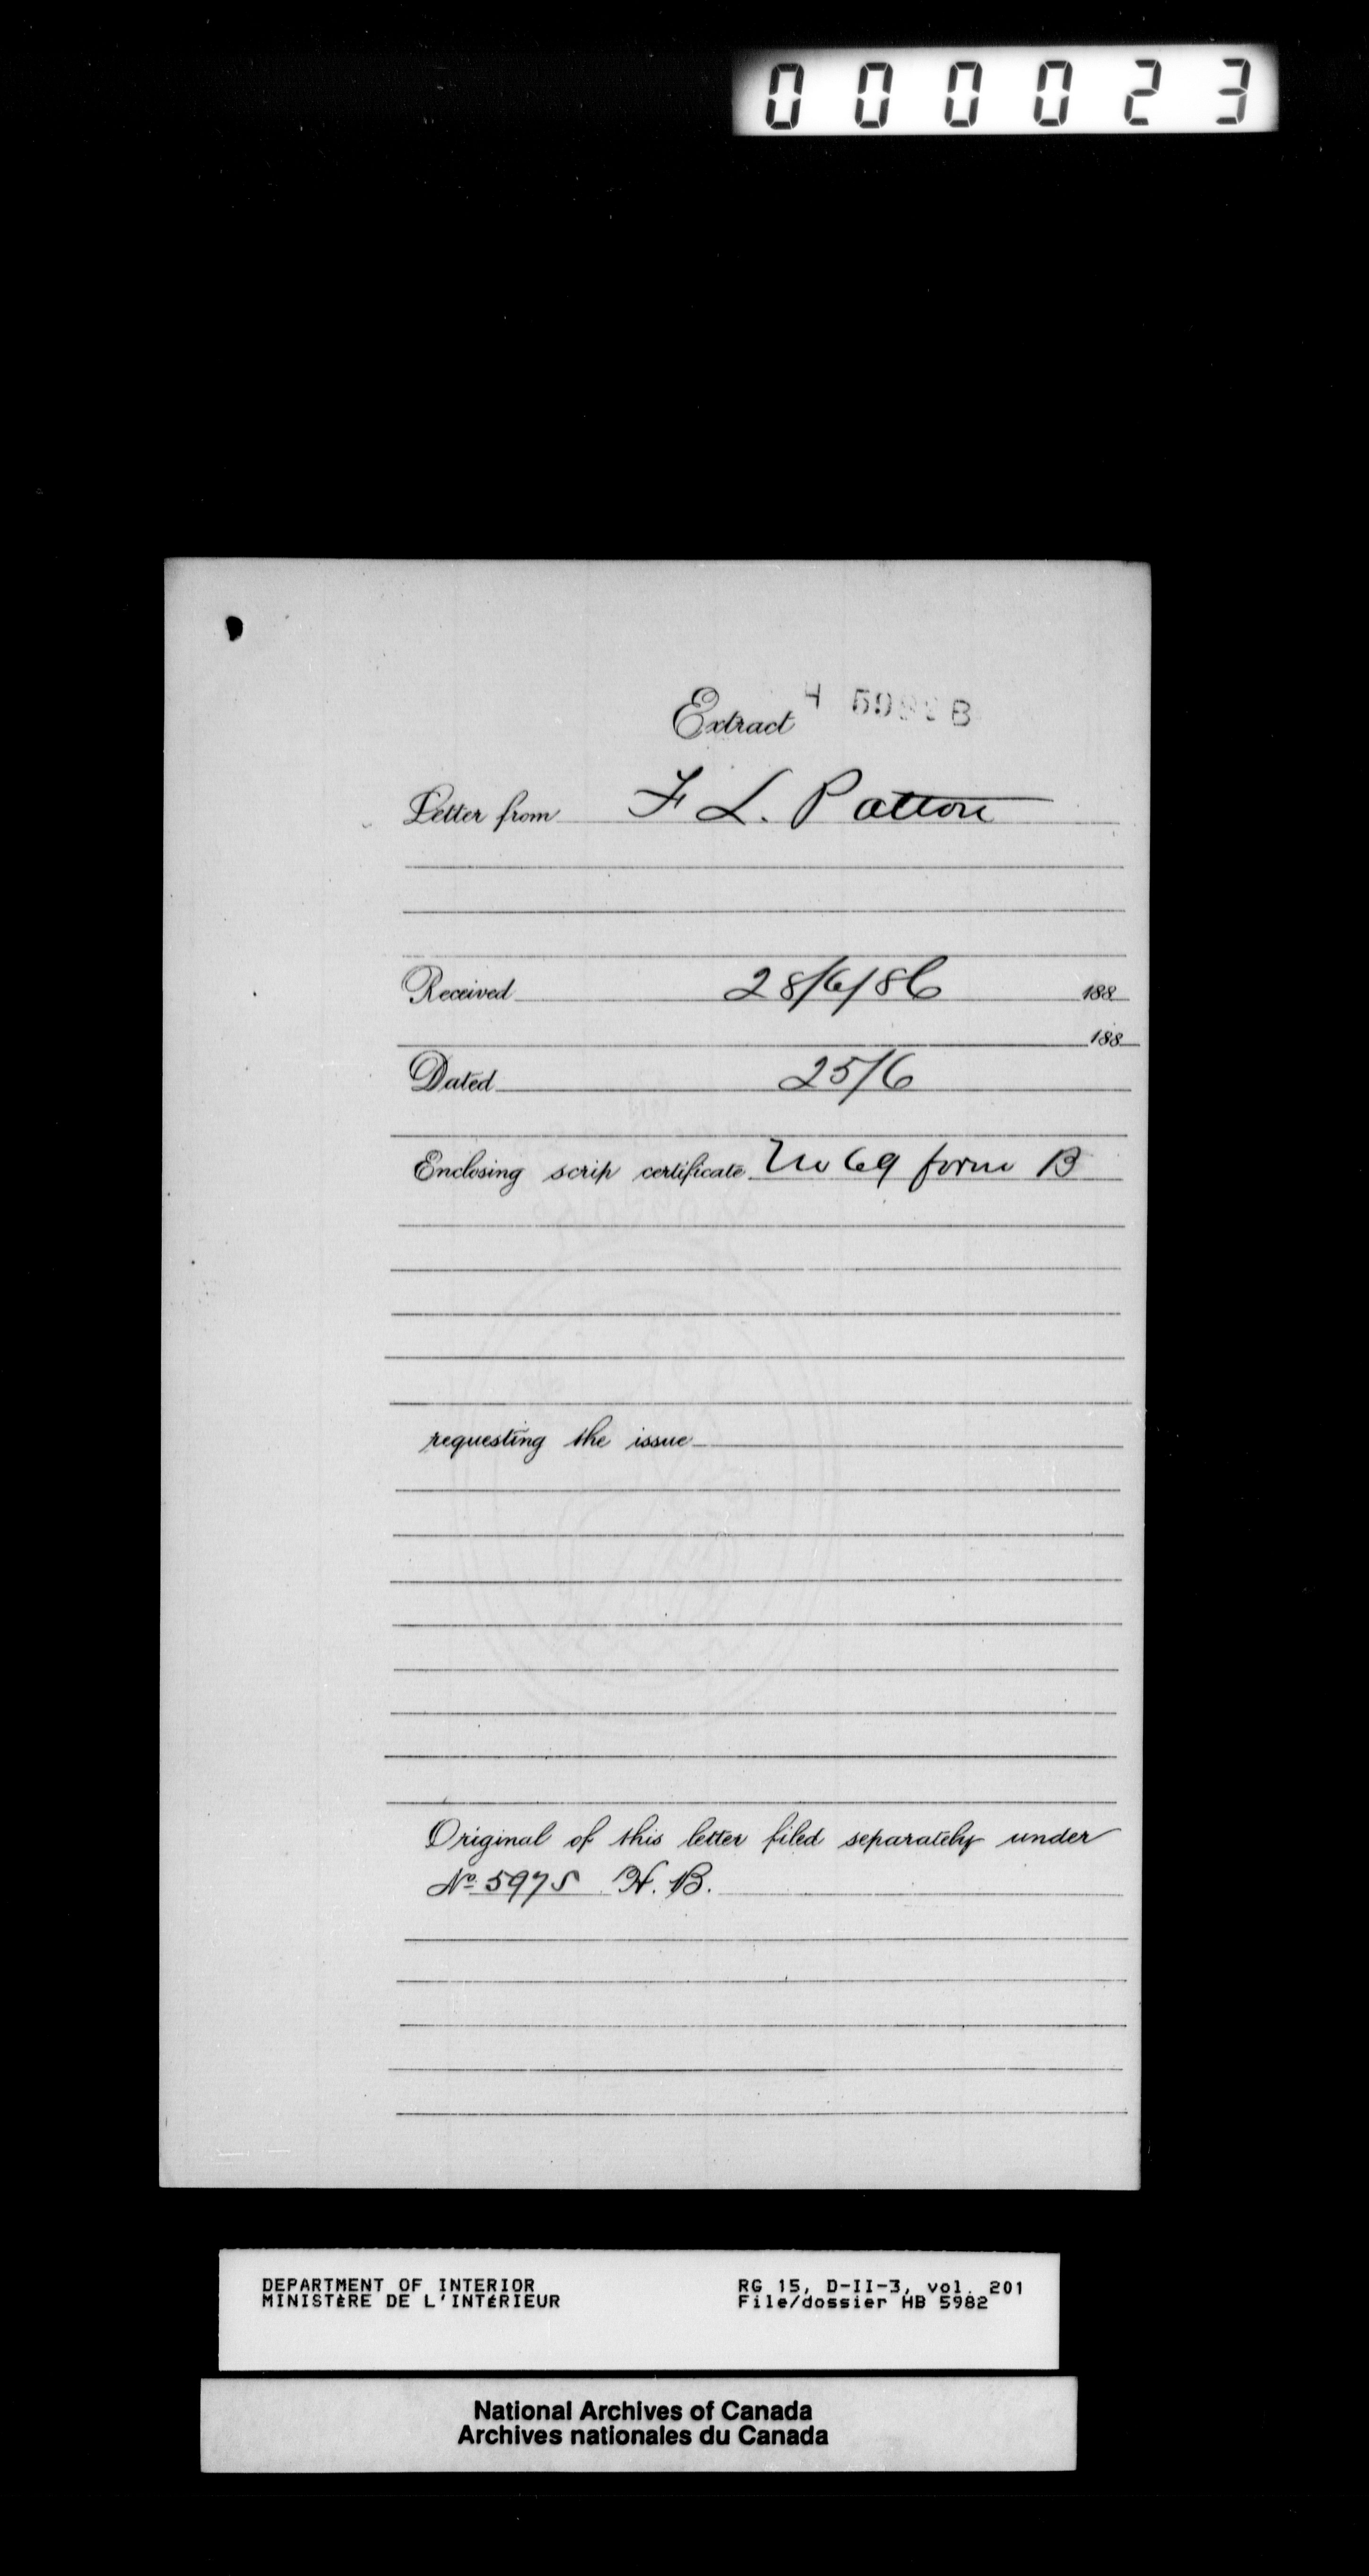 000023
Extract H 5982 B
Letter from F L. Patton
Received 28/6/86 188
188
Dated 25/6
Enclosing scrip certificate No 69 form B
requesting the issue
Original of this letter filed separately under
No 5975 H. B.
DEPARTMENT OF INTERIOR
MINISTÈRE DE L'INTÉRIEUR
RG 15, D-II-3, vol. 201
File/dossier HB 5982
National Archives of Canada
Archives nationales du Canada